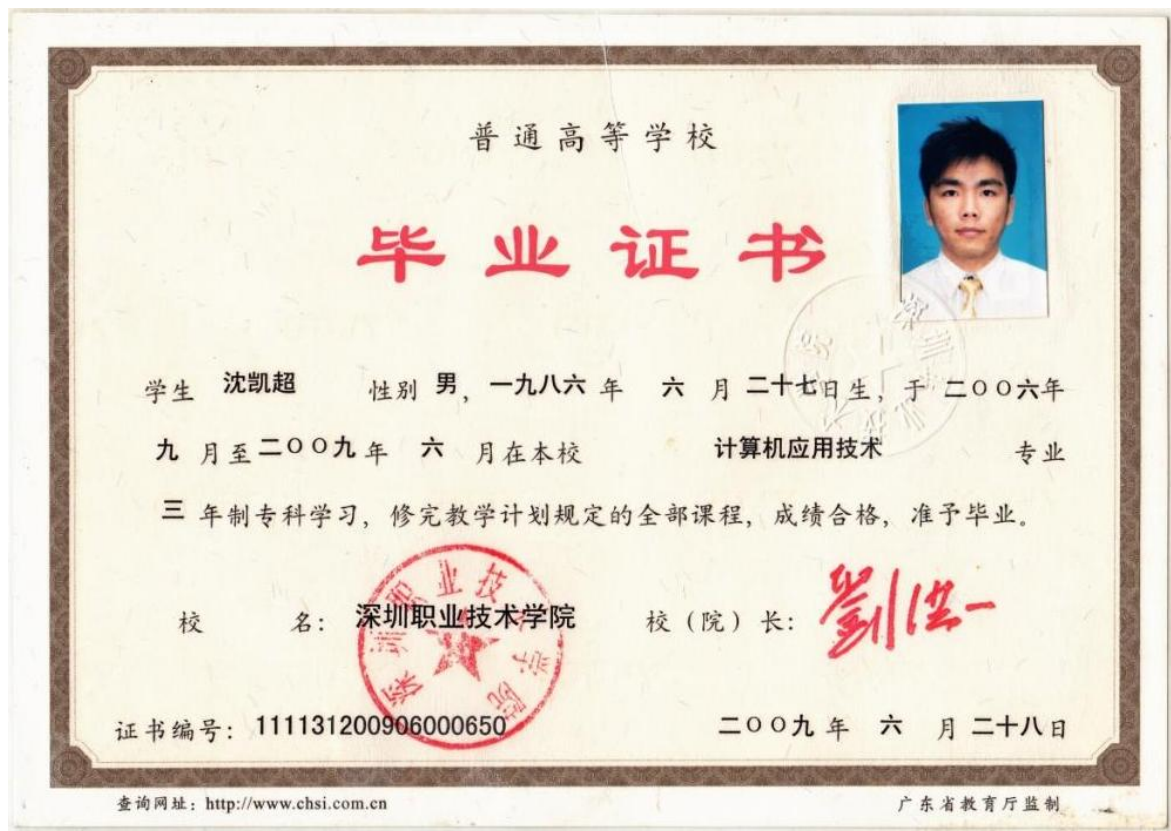 普通高等学校
毕业证书
学生 沈凯超 性别 男, 一九八六 年 六 月 二十七日生, 于 二〇〇六年
九 月至二〇〇九 年 六 月在本校 计算机应用技术 专业
三 年制专科学习, 修完教学计划规定的全部课程, 成绩合格, 准予毕业。
校 名: 深圳职业技术学院 校(院)长: 劉洪一
深圳职业技术学院
证书编号: 111131200906000650 二〇〇九 年 六 月 二十八日
查询网址: http://www.chsi.com.cn 广东省教育厅监制